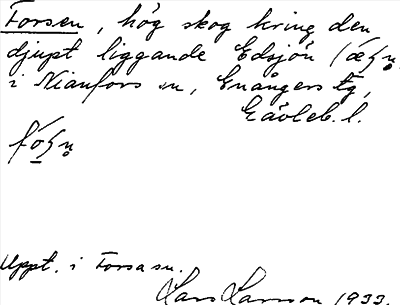 Forsen, hög skog kring den
djupt liggande Edsjön
i Nianfors sn, Enångers tg,
Gävleb. l.
Uppt. i Forsa sn.
Lars Larsson 1933.